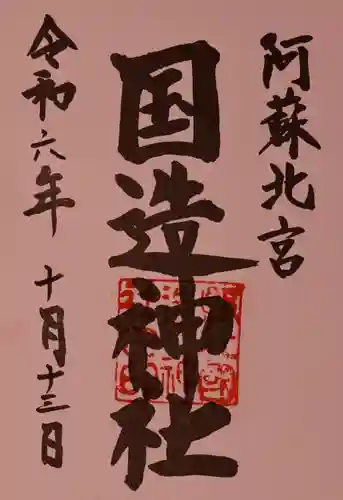 阿蘇北宮
国造神社
令和六年 十月十三日